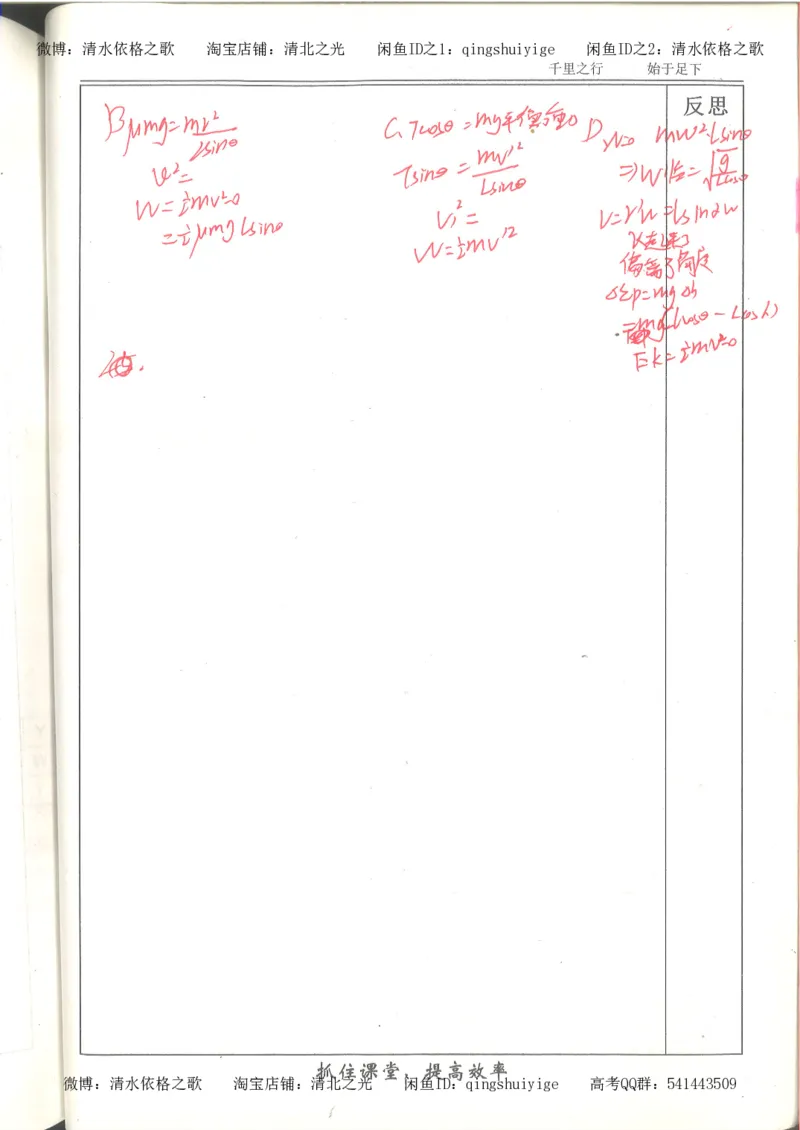 微博：清水依格之歌 淘宝店铺：清北之光 闲鱼ID之1：qingshuiyige 闲鱼ID之2：清水依格之歌
千里之行 始于足下
反思
B μmg=mv²/Lsinθ
v²=
W=½mv²-0
=½μmgLsinθ
C. Tcosθ=mg
Tsinθ=mv'²/Lsinθ
v'²=
W=½mv'²
D N=0 mw²·Lsinθ
⇒W临=√g/Lcosθ
V=r'w=Lsinαw
偏离了角度
ΔEp=mgΔh
=mg(Lcosθ-Lcosα)
Ek=½mv²-0
抓住课堂，提高效率
微博：清水依格之歌 淘宝店铺：清北之光 闲鱼ID：qingshuiyige 高考QQ群：541443509